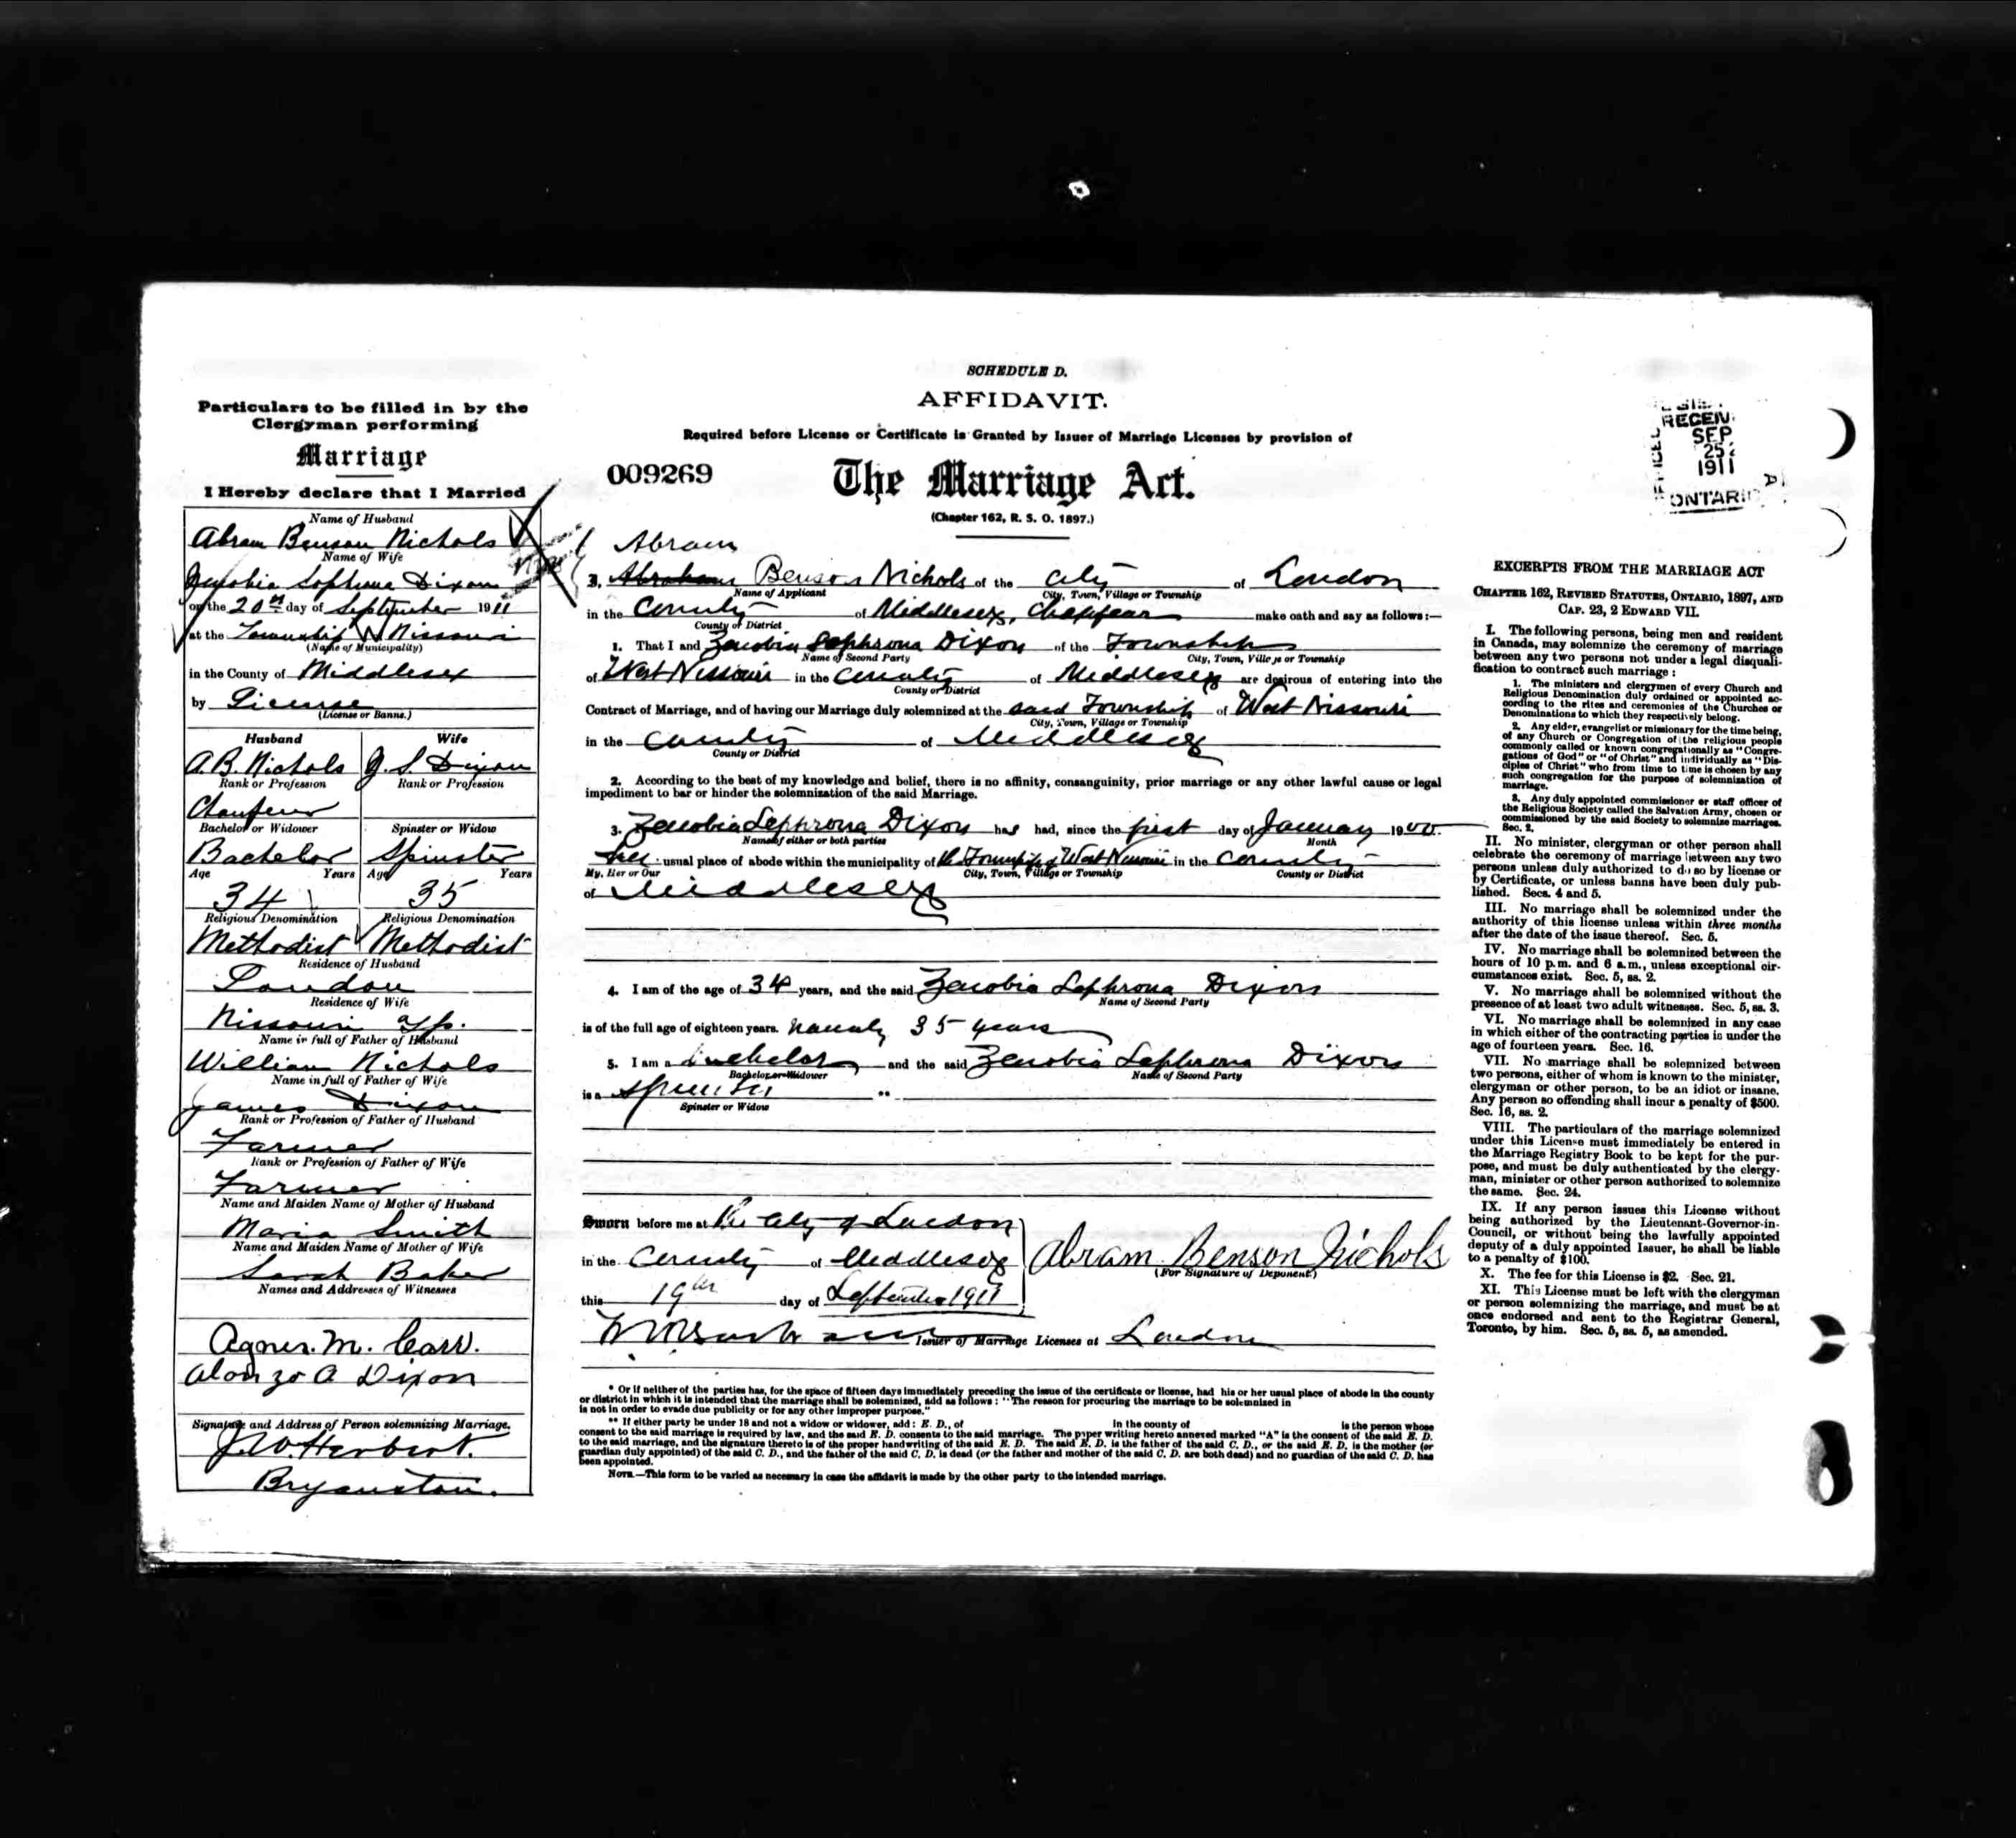 Particulars to be filled in by the
Clergyman performing
Marriage
I Hereby declare that I Married
Name of Husband
Abram Benson Nichols
Name of Wife
Zenobia Sophrona Dixon
on the 20th day of September 1911
at the Township W Nissouri
(Name of Municipality)
in the County of Middlesex
by License
(License or Banns.)
Husband Wife
A. B. Nichols Z. S. Dixon
Rank or Profession Rank or Profession
Chaufeur
Bachelor or Widower Spinster or Widow
Bachelor Spinster
Age Years Age Years
34 35
Religious Denomination Religious Denomination
Methodist Methodist
Residence of Husband
London
Residence of Wife
Nissouri Tp.
Name in full of Father of Husband
William Nichols
Name in full of Father of Wife
James Dixon
Rank or Profession of Father of Husband
Farmer
Rank or Profession of Father of Wife
Farmer
Name and Maiden Name of Mother of Husband
Maria Smith
Name and Maiden Name of Mother of Wife
Sarah Baker
Names and Addresses of Witnesses
Agnes. M. Carr.
Alonzo A Dixon
Signature and Address of Person solemnizing Marriage.
J. W. Herbert.
Bryanston.
SCHEDULE D.
AFFIDAVIT.
Required before License or Certificate is Granted by Issuer of Marriage Licenses by provision of
009269 The Marriage Act.
(Chapter 162, R. S. O. 1897.)
I Abram
I, Abraham Benson Nichols of the City of London
Name of Applicant City, Town, Village or Township
in the County of Middlesex, Chaffear make oath and say as follows:—
County or District
1. That I and Zenobia Sephrona Dixon of the Township
Name of Second Party City, Town, Village or Township
of West Nissouri in the County of Middlesex are desirous of entering into the
County or District
Contract of Marriage, and of having our Marriage duly solemnized at the said Township of West Nissouri
City, Town, Village or Township
in the County of Middlesex
County or District
2. According to the best of my knowledge and belief, there is no affinity, consanguinity, prior marriage or any other lawful cause or legal
impediment to bar or hinder the solemnization of the said Marriage.
3. Zenobia Sephrona Dixon has had, since the first day of January 1900.
Name of either or both parties Month
her usual place of abode within the municipality of the Township of West Nissouri in the County
My, Her or Our City, Town, Village or Township County or District
of Middlesex
4. I am of the age of 34 years, and the said Zenobia Sephrona Dixon
Name of Second Party
is of the full age of eighteen years. namely 35 years
5. I am a bachelor and the said Zenobia Sephrona Dixon
Bachelor or Widower Name of Second Party
is a spinster **
Spinster or Widow
Sworn before me at the City of London
in the County of Middlesex Abram Benson Nichols
(For Signature of Deponent.)
this 19th day of September 1911
Issuer of Marriage Licenses at London
* Or if neither of the parties has, for the space of fifteen days immediately preceding the issue of the certificate or license, had his or her usual place of abode in the county
or district in which it is intended that the marriage shall be solemnized, add as follows: "The reason for procuring the marriage to be solemnized in
is not in order to evade due publicity or for any other improper purpose."
** If either party be under 18 and not a widow or widower, add: E. D., of in the county of is the person whose
consent to the said marriage is required by law, and the said E. D. consents to the said marriage. The paper writing hereto annexed marked "A" is the consent of the said E. D.
to the said marriage, and the signature thereto is of the proper handwriting of the said E. D. The said E. D. is the father of the said C. D., or the said E. D. is the mother (or
guardian duly appointed) of the said C. D., and the father of the said C. D. is dead (or the father and mother of the said C. D. are both dead) and no guardian of the said C. D. has
been appointed.
NOTE.—This form to be varied as necessary in case the affidavit is made by the other party to the intended marriage.
RECEIV
SEP
25
1911
ONTARIO
EXCERPTS FROM THE MARRIAGE ACT
CHAPTER 162, REVISED STATUTES, ONTARIO, 1897, AND
CAP. 23, 2 EDWARD VII.
I. The following persons, being men and resident
in Canada, may solemnize the ceremony of marriage
between any two persons not under a legal disquali-
fication to contract such marriage:
1. The ministers and clergymen of every Church and
Religious Denomination duly ordained or appointed ac-
cording to the rites and ceremonies of the Churches or
Denominations to which they respectively belong.
2. Any elder, evangelist or missionary for the time being,
of any Church or Congregation of the religious people
commonly called or known congregationally as "Congre-
gations of God" or "of Christ" and individually as "Dis-
ciples of Christ" who from time to time is chosen by any
such congregation for the purpose of solemnization of
marriage.
3. Any duly appointed commissioner or staff officer of
the Religious Society called the Salvation Army, chosen or
commissioned by the said Society to solemnize marriages.
Sec. 2.
II. No minister, clergyman or other person shall
celebrate the ceremony of marriage between any two
persons unless duly authorized to do so by license or
by Certificate, or unless banns have been duly pub-
lished. Secs. 4 and 5.
III. No marriage shall be solemnized under the
authority of this license unless within three months
after the date of the issue thereof. Sec. 5.
IV. No marriage shall be solemnized between the
hours of 10 p.m. and 6 a.m., unless exceptional cir-
cumstances exist. Sec. 5, ss. 2.
V. No marriage shall be solemnized without the
presence of at least two adult witnesses. Sec. 5, ss. 3.
VI. No marriage shall be solemnized in any case
in which either of the contracting parties is under the
age of fourteen years. Sec. 16.
VII. No marriage shall be solemnized between
two persons, either of whom is known to the minister,
clergyman or other person, to be an idiot or insane.
Any person so offending shall incur a penalty of $500.
Sec. 16, ss. 2.
VIII. The particulars of the marriage solemnized
under this License must immediately be entered in
the Marriage Registry Book to be kept for the pur-
pose, and must be duly authenticated by the clergy-
man, minister or other person authorized to solemnize
the same. Sec. 24.
IX. If any person issues this License without
being authorized by the Lieutenant-Governor-in-
Council, or without being the lawfully appointed
deputy of a duly appointed Issuer, he shall be liable
to a penalty of $100.
X. The fee for this License is $2. Sec. 21.
XI. This License must be left with the clergyman
or person solemnizing the marriage, and must be at
once endorsed and sent to the Registrar General,
Toronto, by him. Sec. 5, ss. 5, as amended.